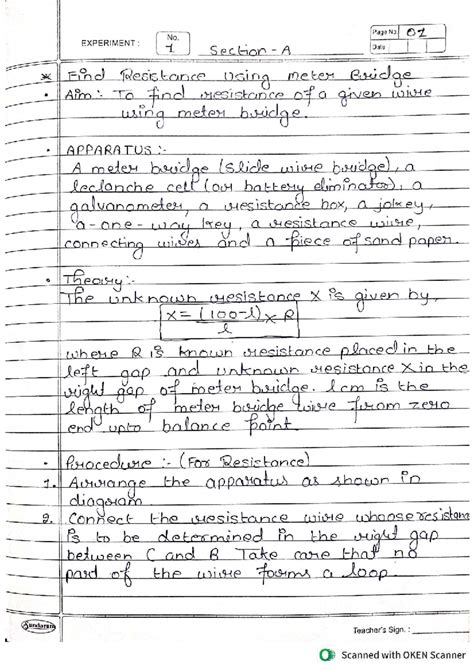 EXPERIMENT : No. 1 Section - A Page No. 01
Date
* Find Resistance Using meter Bridge
• Aim :- To find resistance of a given wire
using meter bridge.
• APPARATUS :-
A meter bridge (Slide wire bridge), a
leclanche cell (or battery eliminator), a
galvanometer, a resistance box, a jokey,
a - one - way key, a resistance wire,
connecting wires and a piece of sand paper.
• Theory :-
The unknown resistance X is given by,
X = (100-l) x R
l
where R is known resistance placed in the
left gap and unknown resistance X in the
right gap of meter bridge. lcm is the
length of meter bridge wire from zero
end upto balance point.
• Procedure :- (For Resistance)
1. Arrange the apparatus as shown in
diagram
2. Connect the resistance wire whose resistam
is to be determined in the right gap
between C and B Take care that no
part of the wire forms a loop.
Sundaram
Teacher's Sign. :
Scanned with OKEN Scanner